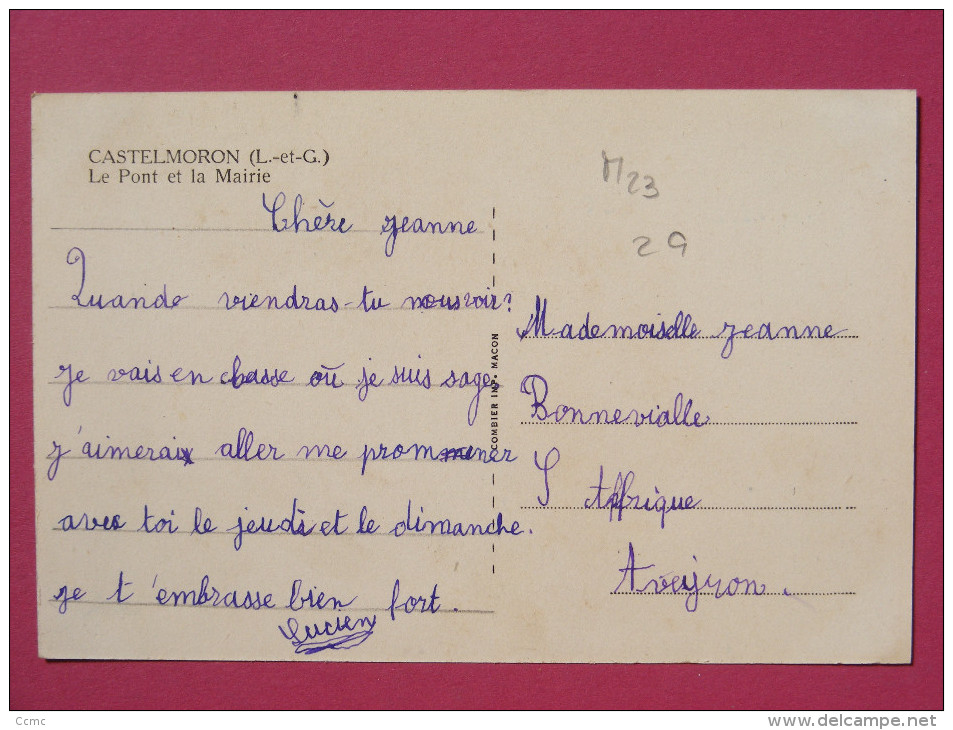 CASTELMORON (L.-et-G.)
Le Pont et la Mairie
Chère jeanne
Quande viendras-tu nous voir?
je vais en classe où je suis sage.
j'aimerai aller me prommener
avec toi le jeudi et le dimanche.
je t'embrasse bien fort.
Lucien
COMBIER IMP. MACON
M23
29
Mademoiselle jeanne
Bonnevialle
S Affrique
Aveyron.
Ccmc
www.delcampe.net